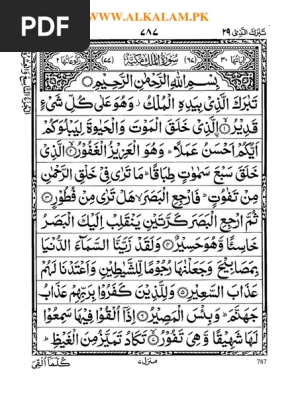 WWW.ALKALAM.PK
PDF
تَبٰرَكَ الَّذِيْ ٢٩
٧٨٧
اٰيَاتُهَا ٣٠
(٦٧) سُوْرَةُ الْمُلْكِ مَكِّيَّةٌ (٧٧)
رُكُوْعَاتُهَا ٢
بِسْمِ اللّٰهِ الرَّحْمٰنِ الرَّحِيْمِ
تَبٰرَكَ الَّذِيْ بِيَدِهِ الْمُلْكُ وَهُوَ عَلٰى كُلِّ شَيْءٍ
قَدِيْرُ ۝١ الَّذِيْ خَلَقَ الْمَوْتَ وَالْحَيٰوةَ لِيَبْلُوَكُمْ
اَيُّكُمْ اَحْسَنُ عَمَلًا ؕ وَهُوَ الْعَزِيْزُ الْغَفُوْرُ ۝٢ الَّذِيْ
خَلَقَ سَبْعَ سَمٰوٰتٍ طِبَاقًا ؕ مَا تَرٰى فِيْ خَلْقِ الرَّحْمٰنِ
مِنْ تَفٰوُتٍ ؕ فَارْجِعِ الْبَصَرَ ۙ هَلْ تَرٰى مِنْ فُطُوْرٍ ۝٣
ثُمَّ ارْجِعِ الْبَصَرَ كَرَّتَيْنِ يَنْقَلِبْ اِلَيْكَ الْبَصَرُ
خَاسِئًا وَّهُوَ حَسِيْرٌ ۝٤ وَلَقَدْ زَيَّنَّا السَّمَآءَ الدُّنْيَا
بِمَصَابِيْحَ وَجَعَلْنٰهَا رُجُوْمًا لِّلشَّيٰطِيْنِ وَاَعْتَدْنَا لَهُمْ
عَذَابَ السَّعِيْرِ ۝٥ وَلِلَّذِيْنَ كَفَرُوْا بِرَبِّهِمْ عَذَابُ
جَهَنَّمَ ؕ وَبِئْسَ الْمَصِيْرُ ۝٦ اِذَآ اُلْقُوْا فِيْهَا سَمِعُوْا
لَهَا شَهِيْقًا وَّهِيَ تَفُوْرُ ۝٧ تَكَادُ تَمَيَّزُ مِنَ الْغَيْظِ ؕ
كُلَّمَآ اُلْقِيَ
منزل ٧
787